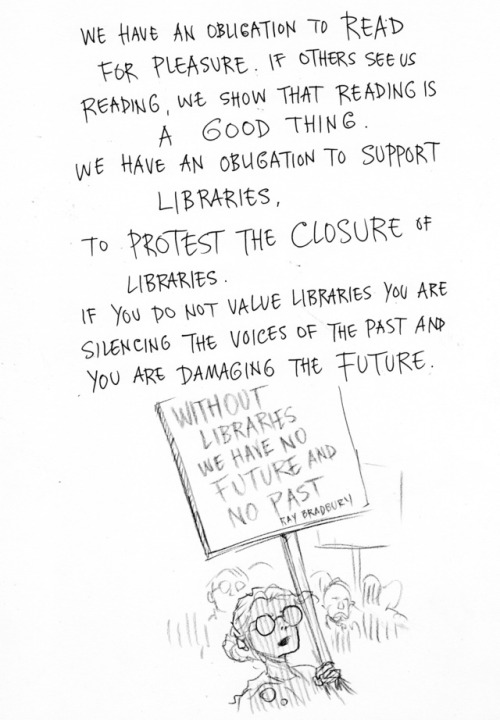 WE HAVE AN OBLIGATION TO READ
FOR PLEASURE. IF OTHERS SEE US
READING, WE SHOW THAT READING IS
A GOOD THING.
WE HAVE AN OBLIGATION TO SUPPORT
LIBRARIES,
TO PROTEST THE CLOSURE OF
LIBRARIES.
IF YOU DO NOT VALUE LIBRARIES YOU ARE
SILENCING THE VOICES OF THE PAST AND
YOU ARE DAMAGING THE FUTURE.
WITHOUT
LIBRARIES
WE HAVE NO
FUTURE AND
NO PAST
RAY BRADBURY